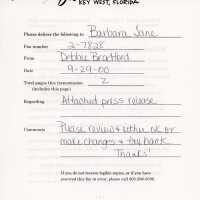 KEY WEST, FLORIDA
Please deliver the following to Barbara Jane
Fax number 2-7828
From Debbie Bradford
Date 9-29-00
Total pages this transmission 2
(includes this page)
Regarding Attached press release
Comments Please review & either OK or
make changes & fax back.
Thanks!
If you do not receive legible copies, or if you have
received this fax in error, please call